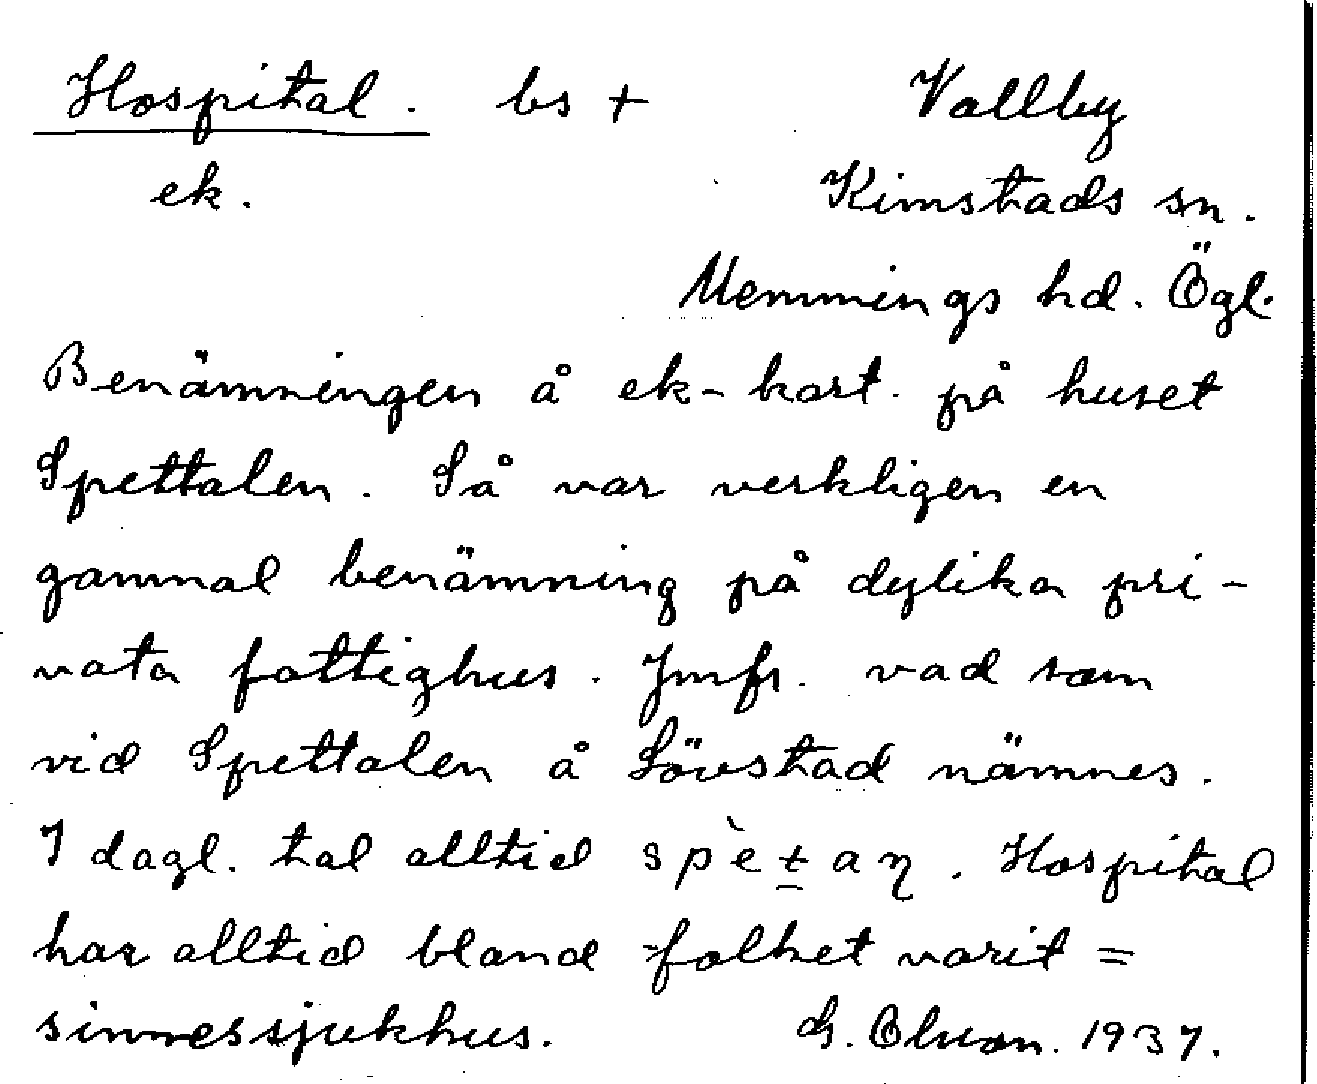 Hospital. bs + Vallby
ek. Kimstads sn.
Memmings hd. Ögl.
Benämningen å ek-kart. på huset
Spettalen. Så var verkligen en
gammal benämning på dylika pri-
vata fattighus. Jmfr. vad som
vid Spettalen å Lövstad nämnes.
I dagl. tal alltid spètaɳ. Hospital
har alltid bland folket varit =
sinnessjukhus. G. Olson. 1937.